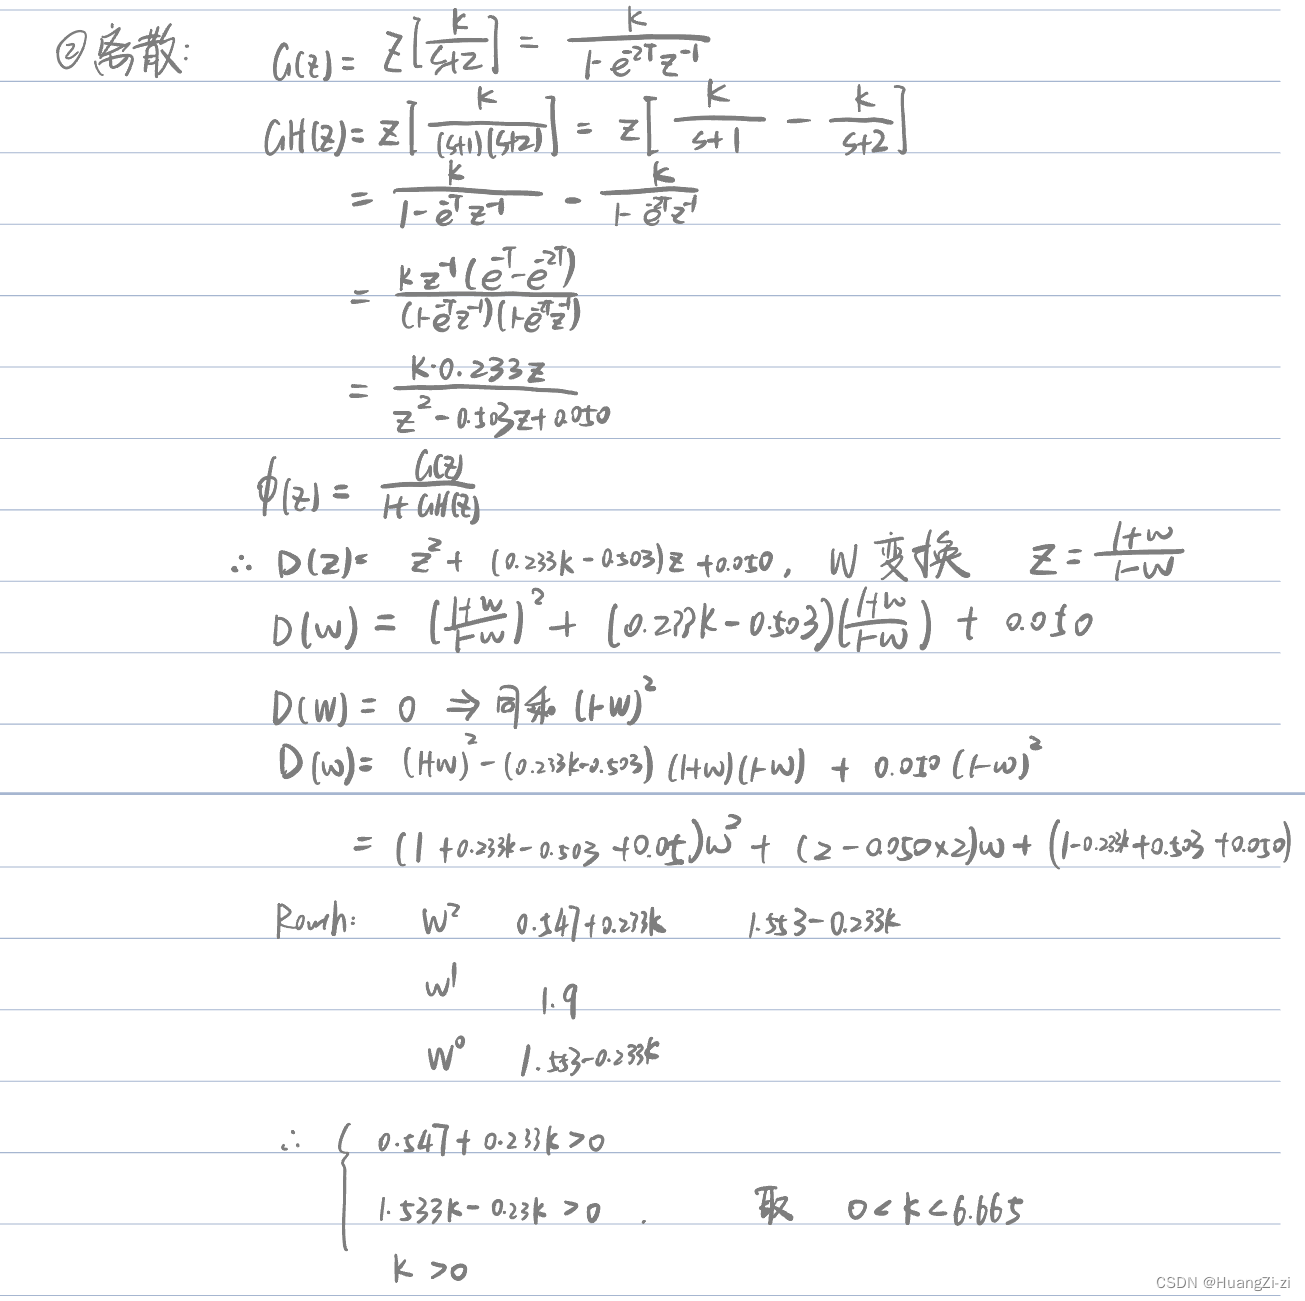 ② 离散: G(z) = Z[k/(s+2)] = k/(1-e^{-2T}z^{-1})
GH(z) = Z[k/((s+1)(s+2))] = Z[k/(s+1) - k/(s+2)]
= k/(1-e^{-T}z^{-1}) - k/(1-e^{-2T}z^{-1})
= kz^{-1}(e^{-T}-e^{-2T})/((1-e^{-T}z^{-1})(1-e^{-2T}z^{-1}))
= k·0.233z/(z^2-0.503z+0.050)
φ(z) = G(z)/(1+GH(z))
∴ D(z)= z^2+(0.233k-0.503)z+0.050, W变换 z=(1+w)/(1-w)
D(w) = ((1+w)/(1-w))^2+(0.233k-0.503)((1+w)/(1-w))+0.050
D(w) = 0 ⇒ 同乘 (1-w)^2
D(w)= (1+w)^2-(0.233k-0.503)(1+w)(1-w)+0.050(1-w)^2
= (1+0.233k-0.503+0.05)w^2+(2-0.050×2)w+(1-0.233k+0.503+0.050)
Routh: w^2 0.547+0.233k 1.553-0.233k
w^1 1.9
w^0 1.553-0.233k
∴ { 0.547+0.233k>0
1.533k-0.23k>0 . 取 0<k<6.665
k>0
CSDN @HuangZi-zi